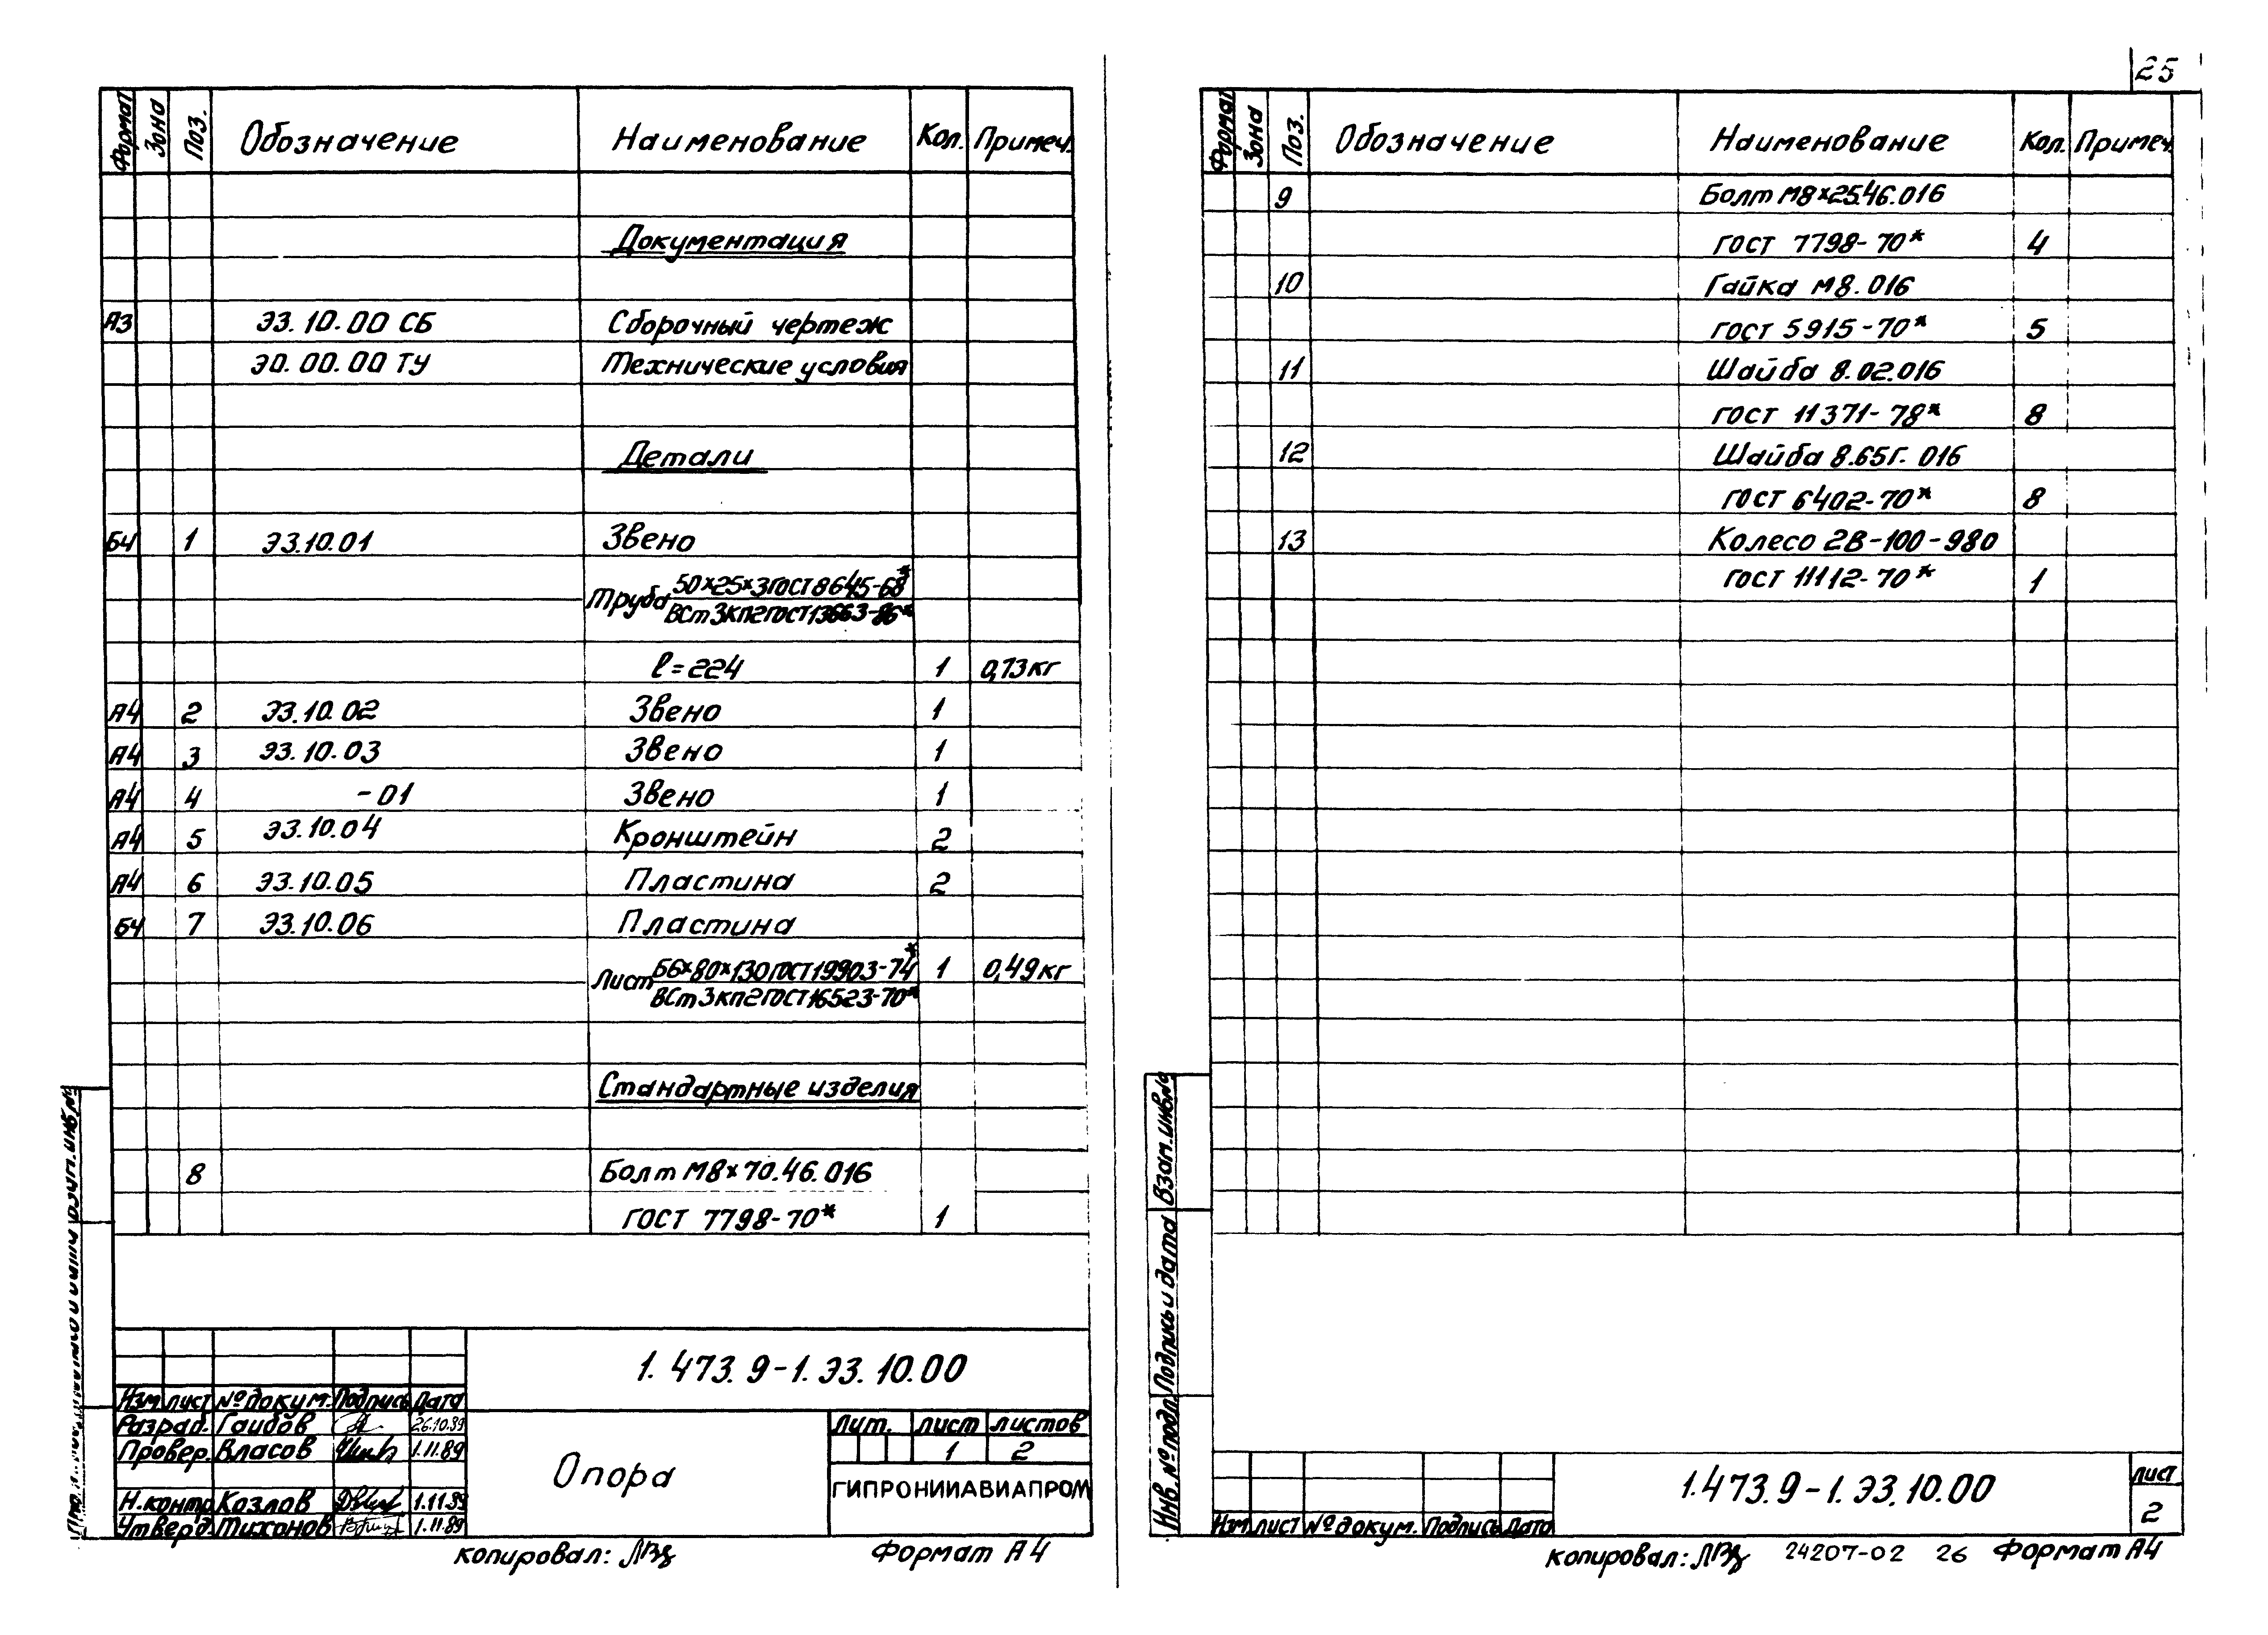 Формат Зона Поз. Обозначение Наименование Кол. Примеч.
Документация
А3 ЭЗ.10.00 СБ Сборочный чертеж
Э0.00.00 ТУ Технические условия
Детали
БЧ 1 ЭЗ.10.01 Звено
Труба 50×25×3 ГОСТ 8645-68*
ВСт3кп2 ГОСТ 13663-86*
ℓ=224 1 0,73кг
А4 2 ЭЗ.10.02 Звено 1
А4 3 ЭЗ.10.03 Звено 1
А4 4 -01 Звено 1
А4 5 ЭЗ.10.04 Кронштейн 2
А4 6 ЭЗ.10.05 Пластина 2
БЧ 7 ЭЗ.10.06 Пластина
Лист Б6×80×130 ГОСТ 19903-74* 1 0,49кг
ВСт3кп2 ГОСТ 16523-70*
Стандартные изделия
8 Болт М8×70.46.016
ГОСТ 7798-70* 1
1.473.9-1.ЭЗ.10.00
Изм Лист № докум. Подпись Дата
Разраб. Гаибов 26.10.89
Провер. Власов 1.11.89
Н.контр Козлов 1.11.89
Утверд. Тихонов 1.11.89
Опора
Лит. Лист Листов
1 2
ГИПРОНИИАВИАПРОМ
Копировал: Формат А4
25
Формат Зона Поз. Обозначение Наименование Кол. Примеч.
9 Болт М8×25.46.016
ГОСТ 7798-70* 4
10 Гайка М8.016
ГОСТ 5915-70* 5
11 Шайба 8.02.016
ГОСТ 11371-78* 8
12 Шайба 8.65Г.016
ГОСТ 6402-70* 8
13 Колесо 2В-100-980
ГОСТ 11112-70* 1
Инв. № подл. Подпись и дата Взам. инв №
1.473.9-1.ЭЗ.10.00
Лист
2
Изм Лист № докум. Подпись Дата
Копировал: 24207-02 26 Формат А4